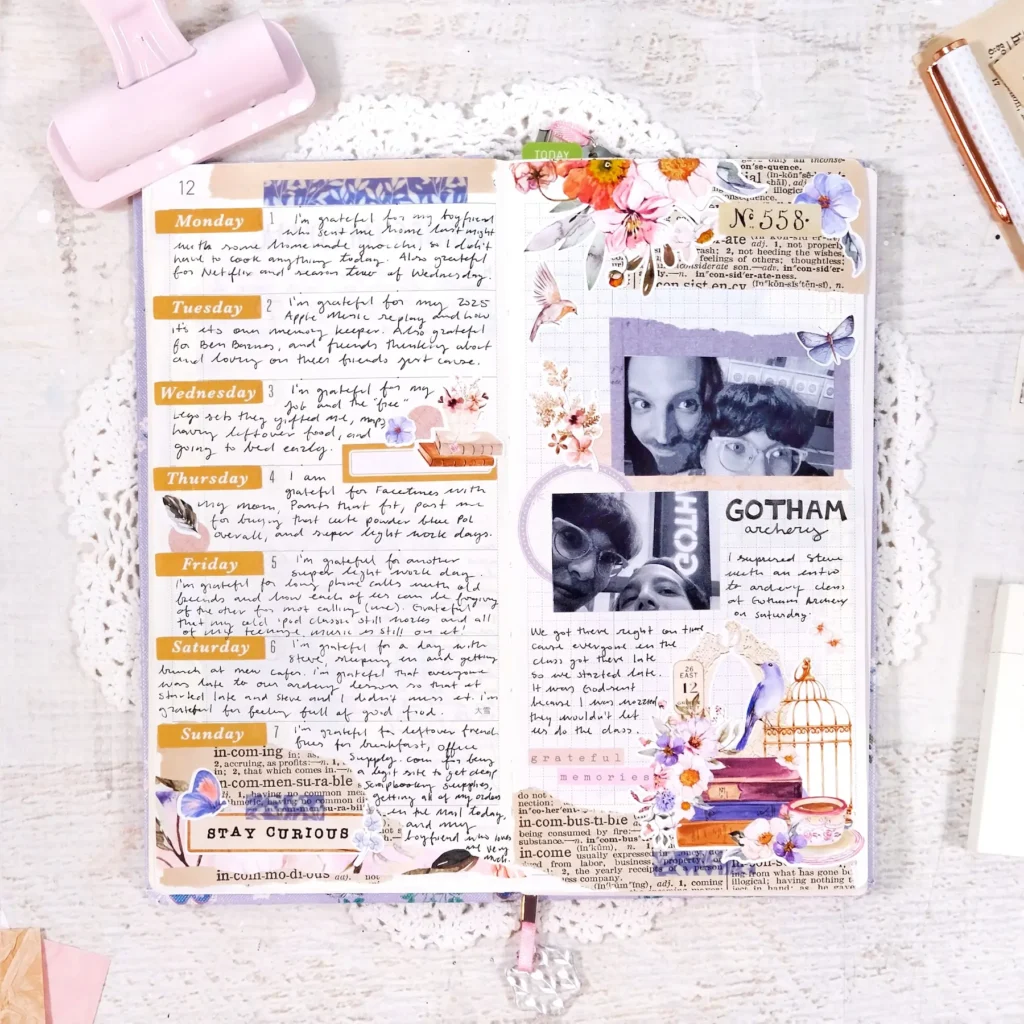 12
TODAY
Monday 1 I'm grateful for my boyfriend
who sent me home last night
with some homemade gnocchi, so I didn't
have to cook anything today. Also grateful
for Netflix and season two of Wednesday.
Tuesday 2 I'm grateful for my 2025
Apple Music replay and how
it's its own memory keeper. Also grateful
for Ben Barnes, and friends thinking about
and loving on their friends just cause.
Wednesday 3 I'm grateful for my
job and the "free"
Lego sets they gifted me, naps,
having leftover food, and
going to bed early.
Thursday 4 I am
grateful for Facetimes with
my mom, pants that fit, past me
for buying that cute powder blue Pol
overall, and super light work days.
Friday 5 I'm grateful for another
super light work day.
I'm grateful for long phone calls with old
friends and how each of us can be forgiving
of the other for not calling (me). Grateful
that my old ipod classic still works and all
of my teenage music is still on it!
Saturday 6 I'm grateful for a day with
Steve, sleeping in and getting
brunch at new cafes. I'm grateful that everyone
was late to our archery lesson so that it
started late and Steve and I didn't miss it. I'm
grateful for feeling full of good food.
大雪
Sunday 7 I'm grateful for leftover friend
fries for breakfast, office
supply.com for being
a legit site to get cheap
scrapbooking supplies,
getting all of my orders
in the mail today,
and my
boyfriend who loves
me very
much.
in·com·ing
2, accruing, as profits:—n. 1,
in; 2, that which comes in.—
in·com·men·su·ra·ble
1, having no common
no common
STAY CURIOUS
in·com·mo·di·ous adj. not
gave only an inconse-
con"se·quence.
№ 558.
adj. 1, not properly
rash; 2, not heeding the wishes,
feelings of others; thoughtless;
inconsiderate son.—adv. in"con·sid'er-
ate·ly.—n. in"con·sid'er·ate·ness.
in·con·sist·en·cy (in"kon-sis'ten-si)
GOTH
GOTHAM
archery
I surprised Steve
with an intro
to archery class
at Gotham Archery
on Saturday.
We got there right on time
cause everyone in the
class got there late
so we started late.
It was Godsent
because I was worried
they wouldn't let
us do the class.
26
EAST
12
grateful
memories
do not
nection:
in"co·her'ent
in·com·bus·ti·ble
being consumed by fire:—
substance.—n.
in·come usually expressed
rived from labor, business, property, or
2, the yearly receipts of a person
ness company.
adj. 1, coming
ing from what has gone
illogical; having nothing